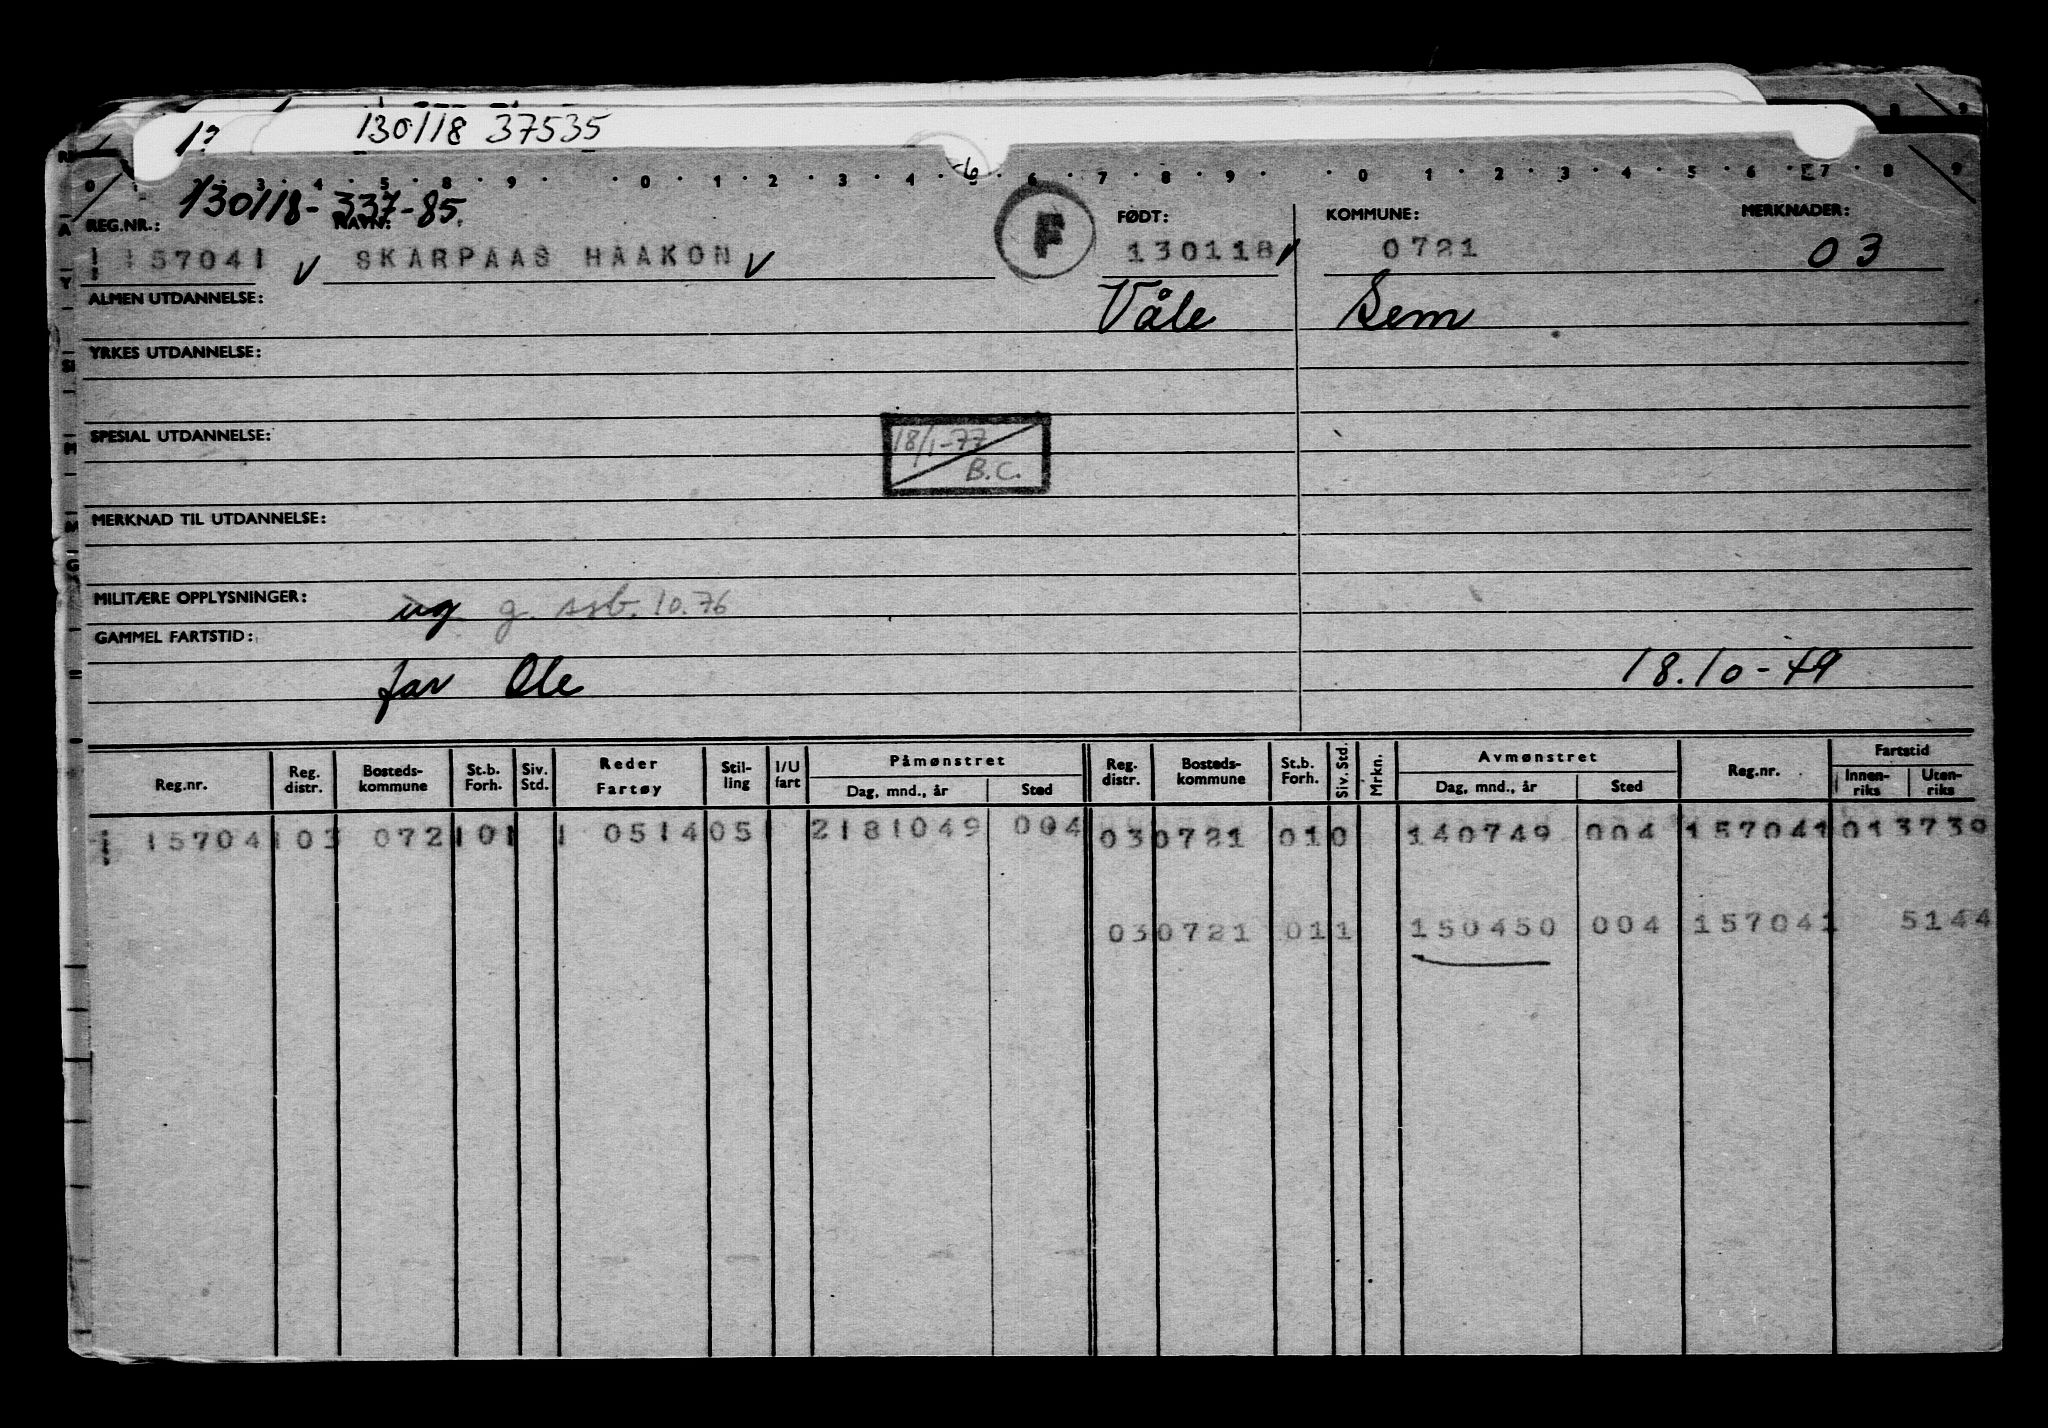 130118 37535
0 3 4 5 8 9 0 1 2 3 4 5 6 7 8 9 0 1 2 3 4 5 6 7 8 9
130118-337-85.
REG.NR.: NAVN: F FØDT: KOMMUNE: MERKNADER:
157041 V SKARPAAS HAAKON V 130118 V 0721 03
ALMEN UTDANNELSE: Våle Sem
YRKES UTDANNELSE:
SPESIAL UTDANNELSE: 18/1-77
B.C.
MERKNAD TIL UTDANNELSE:
MILITÆRE OPPLYSNINGER: ug g. ssb. 10.76
GAMMEL FARTSTID:
far Ole 18.10-49
Reg.nr. Reg. distr. Bosteds-kommune St.b. Forh. Siv. Std. Reder Fartøy Stil-ling I/U fart Påmønstret Dag, mnd., år Sted Reg. distr. Bosteds-kommune St.b. Forh. Siv. Std. Mrkn. Avmønstret Dag, mnd., år Sted Reg.nr. Fartstid Innen-riks Uten-riks
157041 03 0721 01 1 0514 05 2 181049 004 03 0721 01 0 140749 004 157041 013739
03 0721 01 1 150450 004 157041 5144